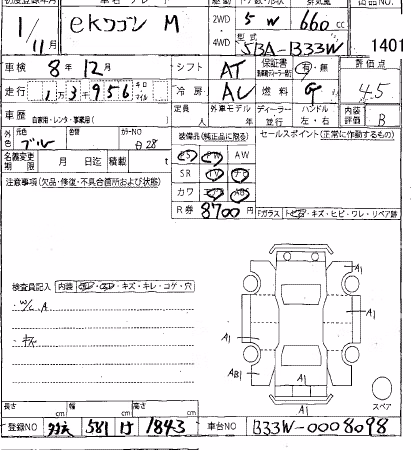 初度登録年月
駆動
ドア数・形状
排気量
出品NO.
1/11月 ekワゴン M 2WD 4WD 5 W 660 cc
型式 5BA-B33W 1401
車検 8年 12月 シフト AT 保証書 有・無 評価点
走行 1 3,956 キロ マイル 冷房 AC 燃料 G 4.5
車歴 自家用・レンタ・事業用( ) 定員 人 外車モデル 年 ディーラー 並行 ハンドル 左・右 内装評価 B
外色 元色 ブル 色替 カラーNO 装備品(純正品に限る) セールスポイント(正常に作動するもの)
PS PW AW
名義変更期限 月 日迄 積載 t SR TV ナビ
注意事項(欠品・修復・不具合箇所および状態) カワ エアB ABS
R券 8700円 Fガラス トビ石・キズ・ヒビ・ワレ・リペア跡
検査員記入 内装 ・キズ・キレ・コゲ・穴
W/C.A
・キズ
A1
A1
A1
AB1
A1
スペア
長さ cm 幅 cm 高さ cm
登録NO 581 は 1843 車台NO B33W-0008098